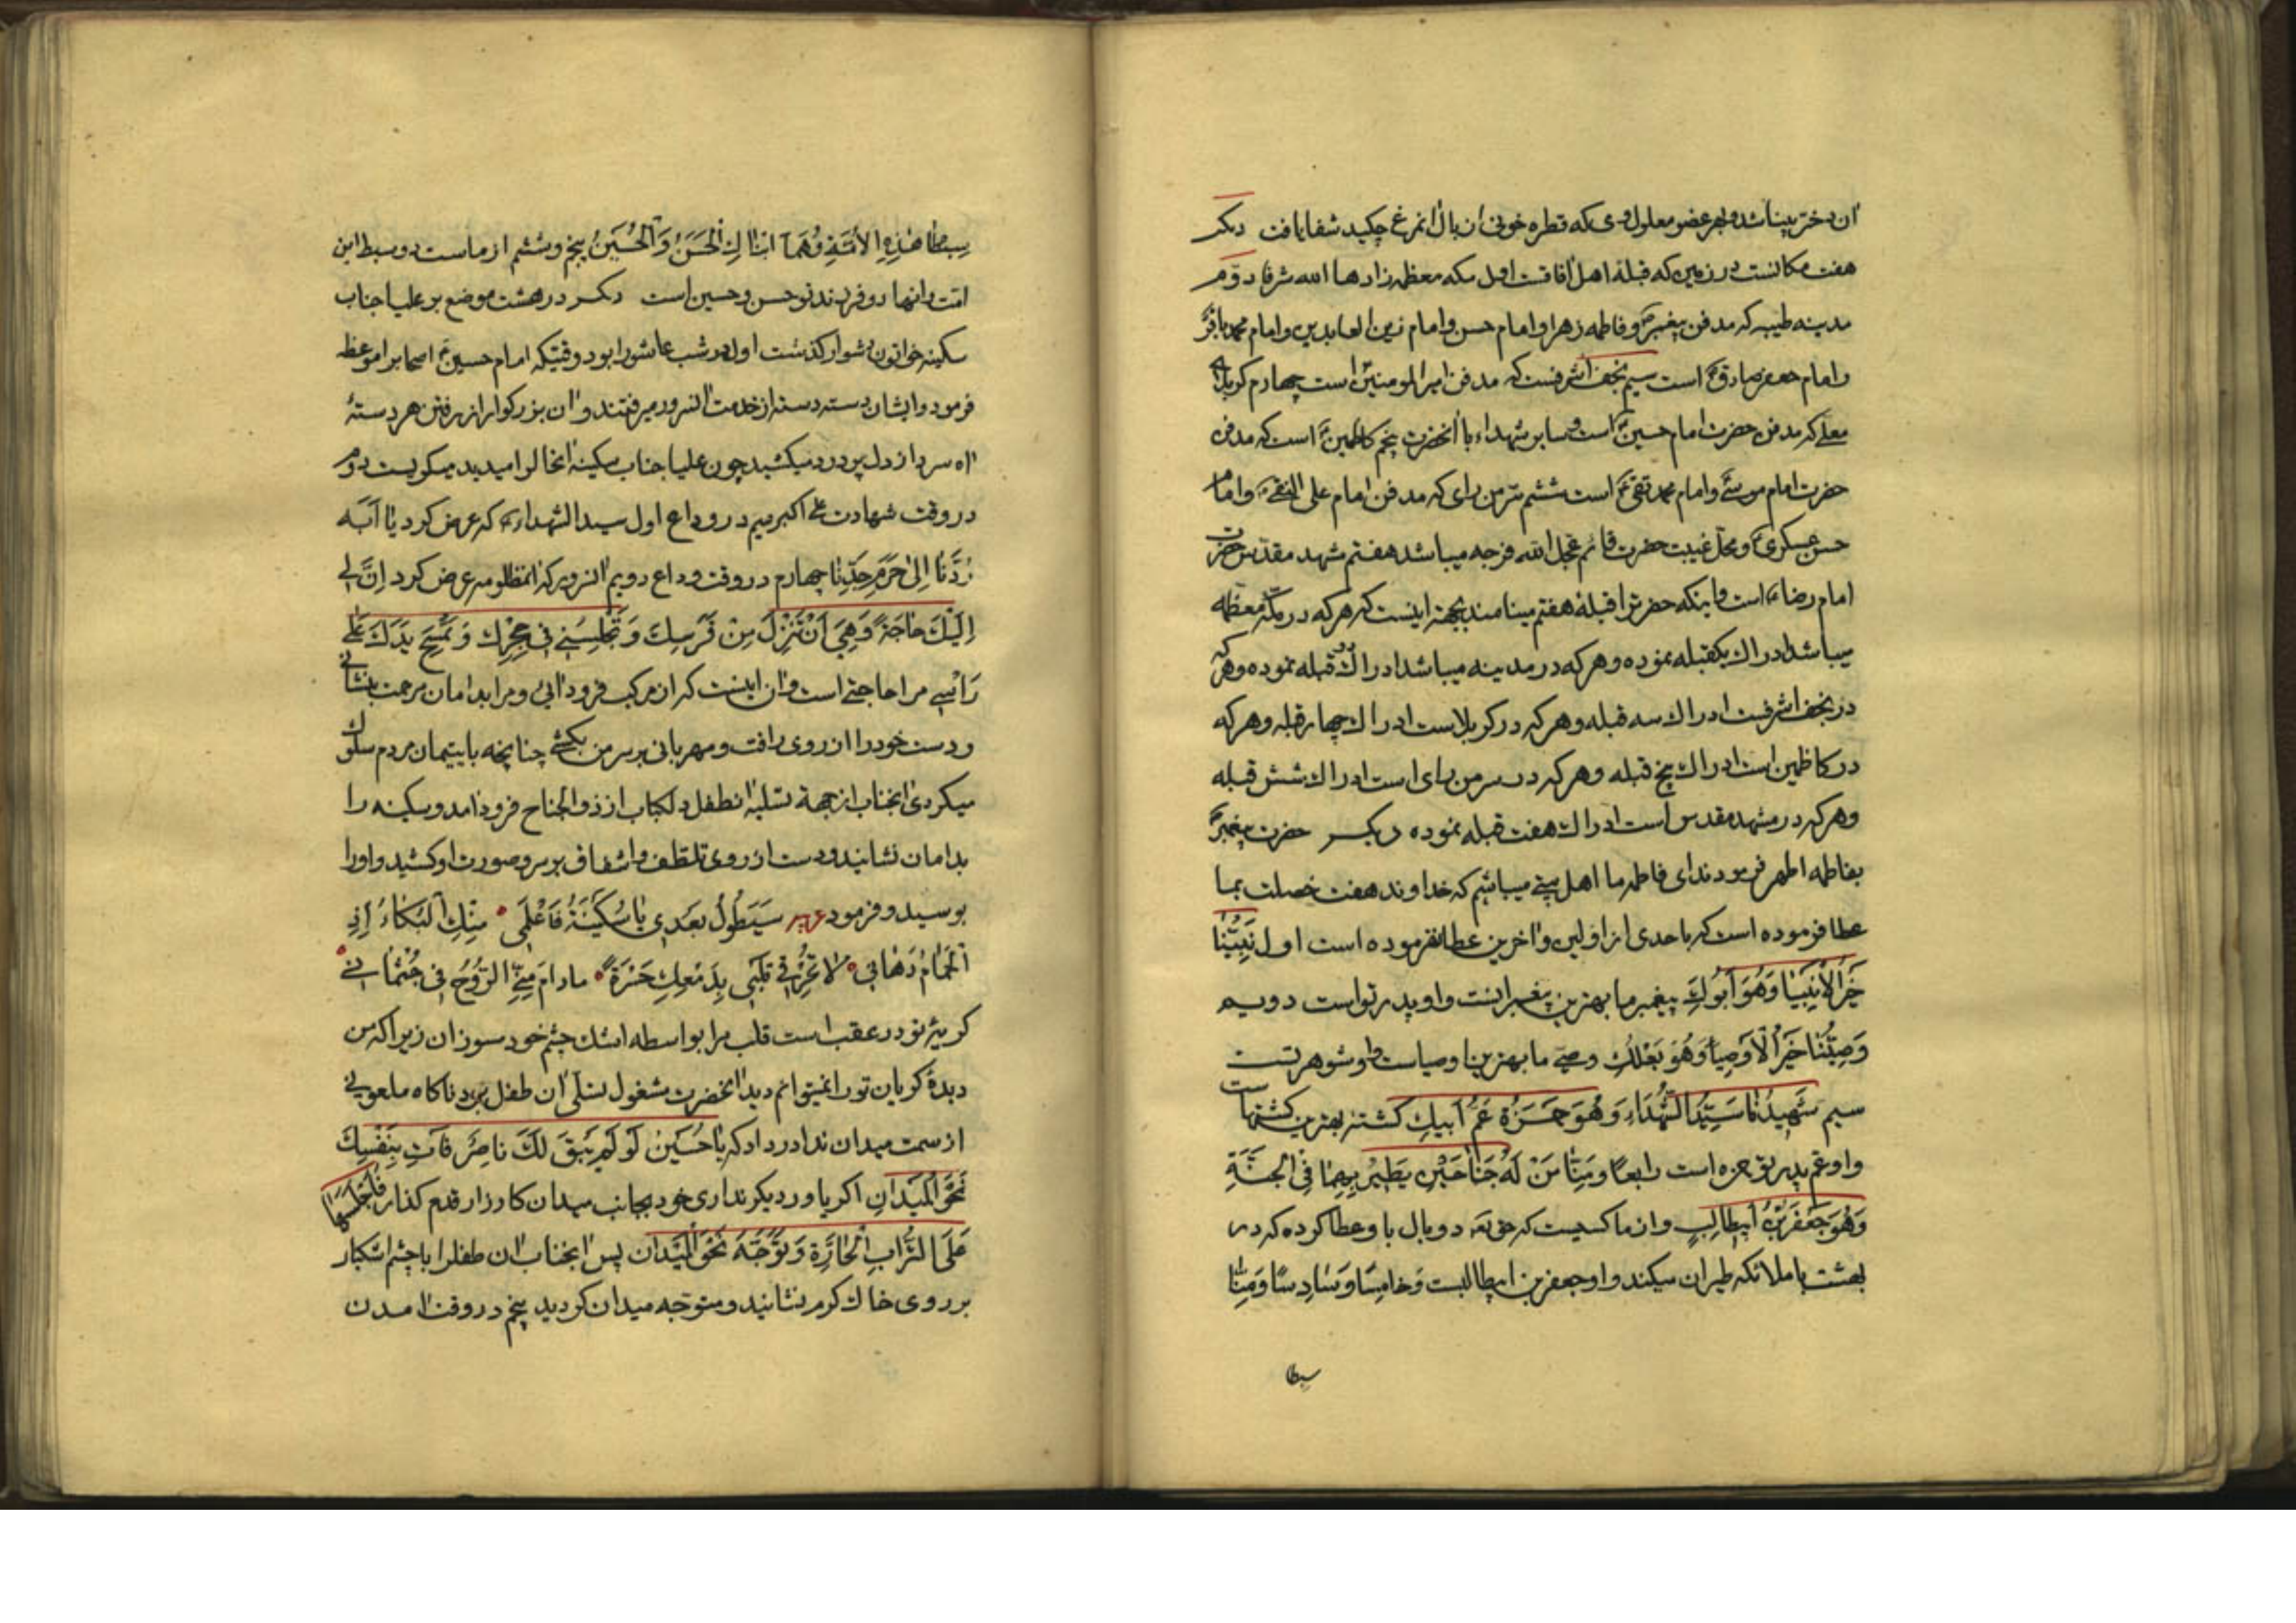 ان دختر بینا شد و هر عضو معلول وی که قطره خونی از بال انمرغ چکید شفا یافت دیکر
هفت مکانست در زمین که قبلهٔ اهل افاقست اول مکه معظمه زادها الله شرفا دوّم
مدینه طیبه که مدفن پیغمبرص و فاطمه زهرا و امام حسن و امام زین العابدین و امام محمد باقرع
و امام جعفر صادقع است سیم نجف اشرفست که مدفن امیرالمومنینع است چهارم کربلای
معلی که مدفن حضرت امام حسینع است و سایر شهداء با انحضرت پنجم کاظمینع است که مدفن
حضرت امام موسی و امام محمد تقیع است ششم سرّمن رای که مدفن امام علی النقیع و امام
حسن عسکریع و محلّ غیبت حضرت قائم عجل الله فرجه میباشد هفتم مشهد مقدّس حضرت
امام رضاع است و اینکه حضرترا قبلهٔ هفتم مینامند بجهة اینست که هرکه در مکّه معظمه
میباشد ادراک یکقبله نموده و هرکه در مدینه میباشد ادراک دو قبله نموده و هرکه
در نجف اشرفست ادراک سه قبله و هرکه در کربلاست ادراک چهار قبله و هرکه
در کاظمین است ادراک پنج قبله و هرکه در سرمن رای است ادراک شش قبله
و هرکه در مشهد مقدس است ادراک هفت قبله نموده دیکر حضرت پیغمبرص
بفاطمه اطهر فرمودند ای فاطمه ما اهل بیتی میباشیم که خداوند هفت خصلت بما
عطا فرموده است که باحدی از اولین و اخرین عطا نفرموده است اول نَبِیُّنا
خَیْرُ الْاَنْبِیَا وَهُوَ اَبُوکِ پیغمبر ما بهترین پیغمبرانست و او پدر تواست دویم
وَصِیُّنا خَیْرُ الْاَوْصِیاءِ وَهُوَ بَعْلُکِ وصی ما بهترین اوصیاست و او شوهر تست
سیم شَهِیدُنا سَیِّدُ الشُّهَداءِ وَهُوَ حَمْزَةُ عَمُّ اَبیکِ کشتهٔ ما بهترین کشتهاست
و او عم پدر تو حمزه است رابعًا وَمِنّا مَنْ لَهُ جَناحَیْنِ یَطیرُ بِهِما فِی الْجَنَّةِ
وَهُوَ جَعْفَرُ بْنُ اَبیطالِبٍ و از ما کسیست که حق تع دو بال باو عطا کرده که در
بهشت با ملائکه طیران میکند و او جعفر بن ابیطالبست وَخامِسًا وَسادِسًا وَمِنّا
سبطا
سِبْطا هٰذِهِ الْاُمَّةِ وَهُمَا ابْناکِ الْحَسَنُ وَالْحُسَیْنُ پنجم و ششم از ماست دو سبط این
امّت و انها دو فرزند تو حسن و حسین است دیکر در هشت موضع بر علیا جناب
سکینه خواتون دشوار کذشت اول در شب عاشورا بود وقتیکه امام حسینع اصحابرا موعظه
فرمود و ایشان دسته دسته از خدمت انسرور میرفتند و ان بزرکوار از رفتن هر دستهٔ
اه سرد از دل پر درد میکشید چون علیا جناب سکینه انحالرا میدید میکریست دوّم
در وقت شهادت علی اکبر سیم در وداع اول سید الشهداءع که عرض کرد یا اَبَه
رُدَّنا اِلیٰ حَرَمِ جَدِّنا چهارم در وقت وداع دویم انسرور که انمظلومه عرض کرد اِنَّ لی
اِلَیْكَ حاجَةً وَهِیَ اَنْ تَنْزِلَ مِنْ فَرَسِكَ وَتُجْلِسَنی فی حِجْرِكَ وَتَمْسَحَ یَدَكَ عَلیٰ
رَأْسی مرا حاجتی است و ان اینست که از مرکب فرود ائی و مرا بدامان مرحمت بنشانی
و دست خود را از روی رافت و مهربانی بر سر من بکشی چنانچه با یتیمان مردم سلوک
میکردی انجناب از جهة تسلیهٔ انطفل دلکباب از ذوالجناح فرود امد و سکینه را
بدامان نشانید و دست از روی تلطّف و اشفاق بر سر و صورت او کشید و او را
بوسید و فرمود عربیه سَیَطُولُ بَعْدی یا سُکَیْنَةُ فَاعْلَمی مِنْكِ الْبُکاءُ اِذِ
الْحَمامُ دَهانی لا تُحْرِقی قَلْبی بِدَمْعِكِ حَسْرَةً مادامَ مِنِّی الرُّوحُ فی جُثْمانی
کریهٔ تو در عقب است قلب مرا بواسطه اشک چشم خود مسوزان زیرا که من
دیدهٔ کریان تو را نمیتوانم دید انحضرت مشغول تسلّی ان طفل بود ناکاه ملعونی
از سمت میدان ندا در داد که یا حُسَیْنُ لَوْ لَمْ یَبْقَ لَكَ ناصِرٌ فَأْتِ بِنَفْسِكَ
نَحْوَ الْمَیْدانِ اکر یاور دیکر نداری خود بجانب میدان کارزار قدم کذار فَاَجْلَسَها
عَلَی التُّرابِ الْحارَّةِ وَتَوَجَّهَ نَحْوَ الْمَیْدان پس انجناب ان طفلرا با چشم اشکبار
بر روی خاک کرم نشانید و متوجه میدان کردید پنجم در وقت امدن